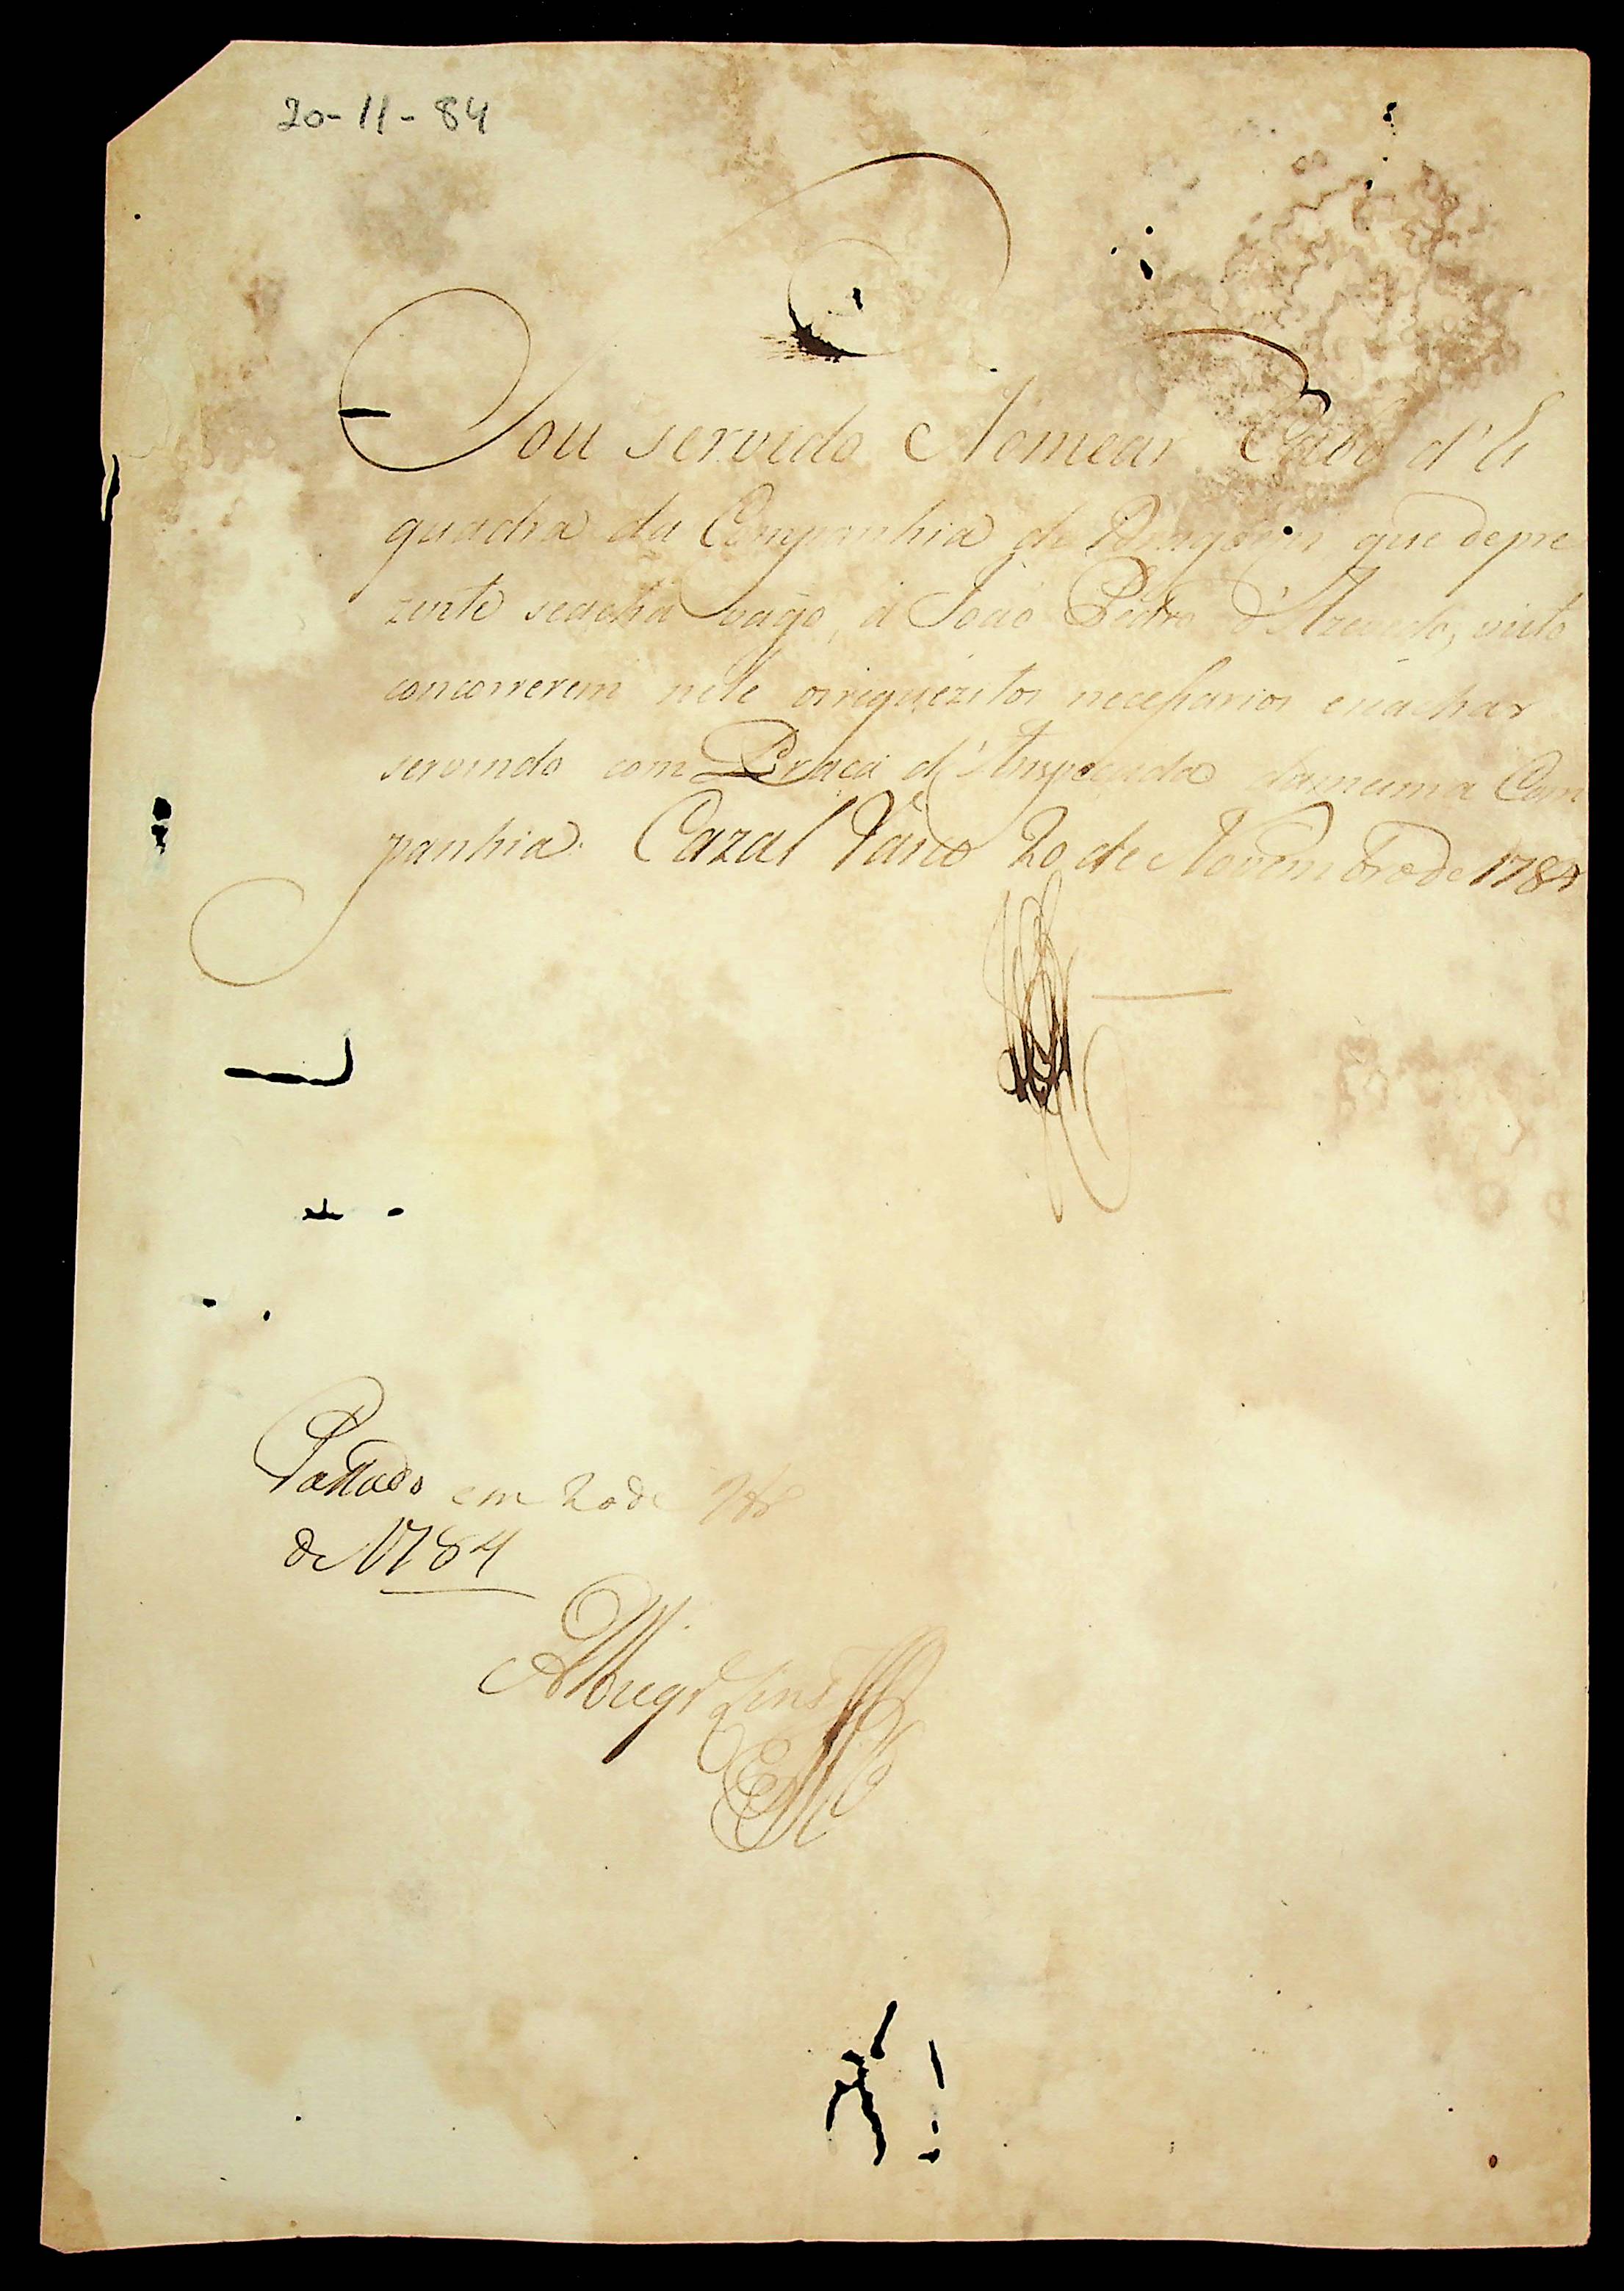 20-11-84
Sou servido Nomear Cabo d'Es
quadra da Companhia de Dragoens que depre
zente seacha vago, a João Pedro d'Azevedo, visto
concorrerem nele osrequezitos necessarios eseachar
servindo com Praça d'Anspeçada damesma Com
panhia. Cazal Vasco 20 de Novembro de 1784
em 20 de 9br.o
de 1784